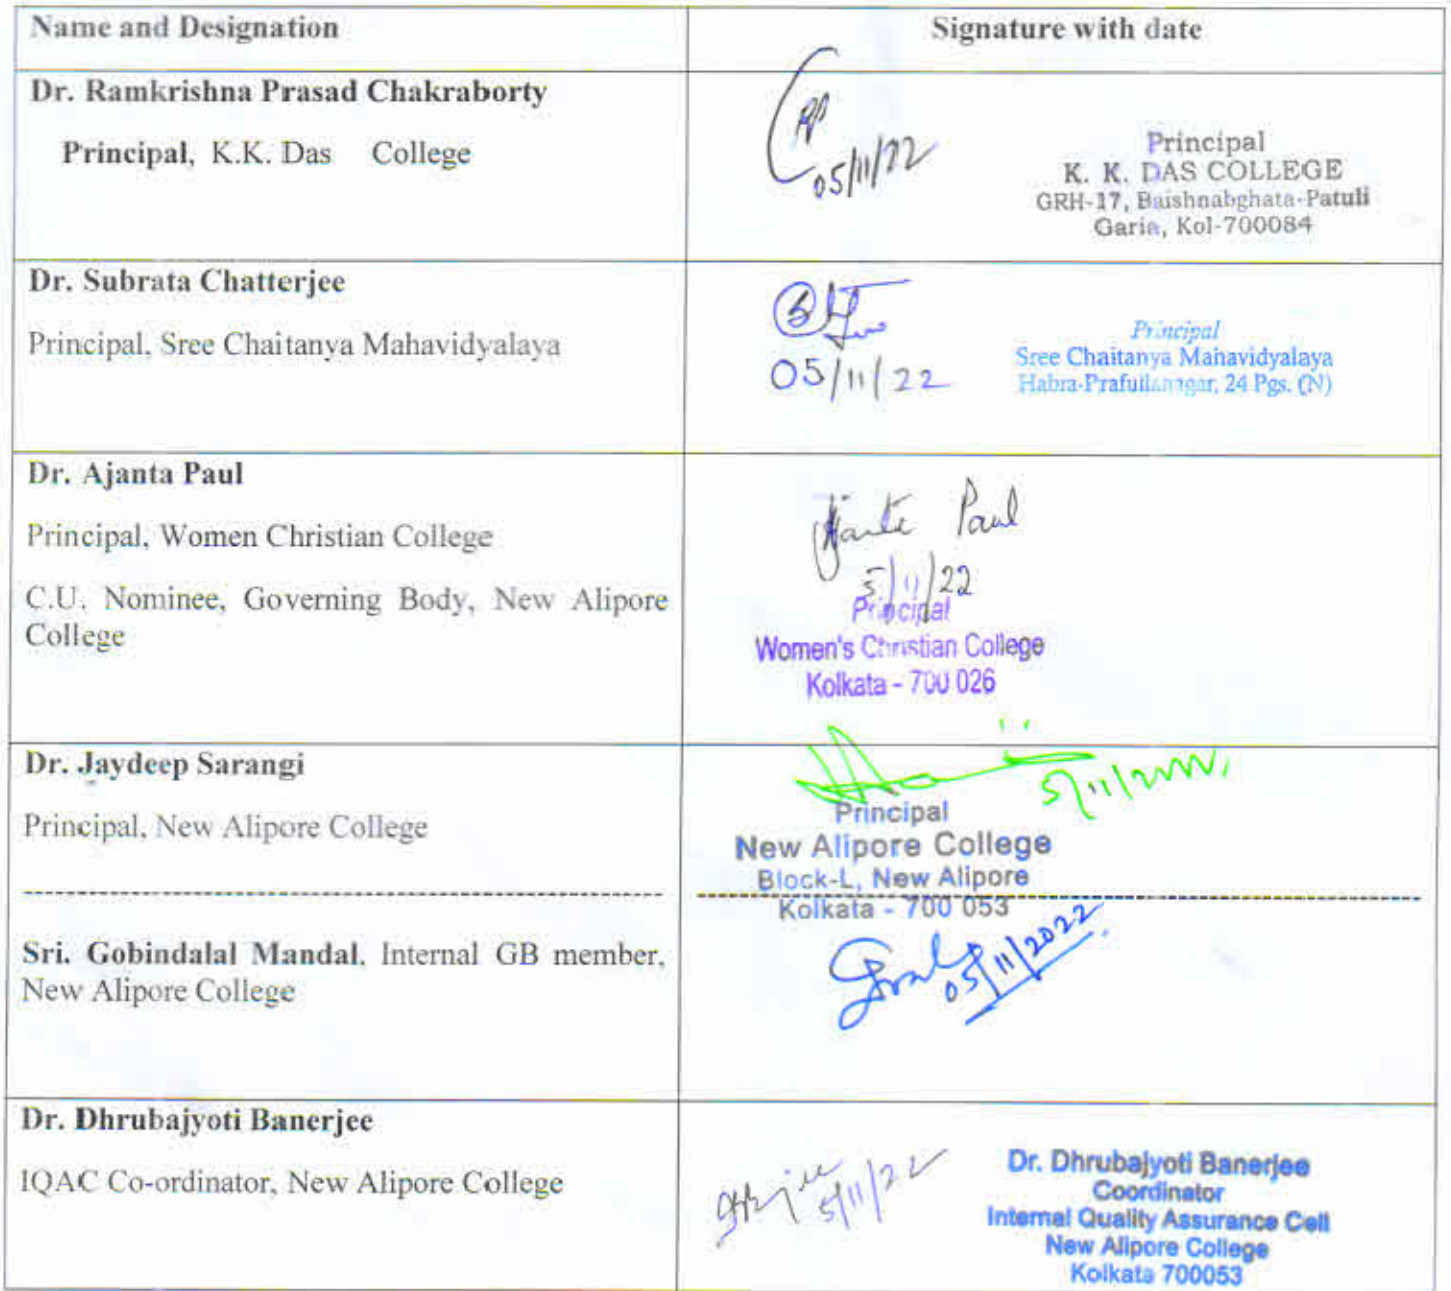 Name and Designation
Signature with date
Dr. Ramkrishna Prasad Chakraborty
Principal, K.K. Das College
05/11/22
Principal
K. K. DAS COLLEGE
GRH-17, Baishnabghata-Patuli
Garia, Kol-700084
Dr. Subrata Chatterjee
Principal, Sree Chaitanya Mahavidyalaya
05/11/22
Principal
Sree Chaitanya Mahavidyalaya
Habra-Prafullanagar, 24 Pgs. (N)
Dr. Ajanta Paul
Principal, Women Christian College
C.U. Nominee, Governing Body, New Alipore
College
Ajanta Paul
5/11/22
Principal
Women's Christian College
Kolkata - 700 026
Dr. Jaydeep Sarangi
Principal, New Alipore College
5/11/2022
Principal
New Alipore College
Block-L, New Alipore
Kolkata - 700 053
Sri. Gobindalal Mandal, Internal GB member,
New Alipore College
05/11/2022
Dr. Dhrubajyoti Banerjee
IQAC Co-ordinator, New Alipore College
5/11/22
Dr. Dhrubajyoti Banerjee
Coordinator
Internal Quality Assurance Cell
New Alipore College
Kolkata 700053